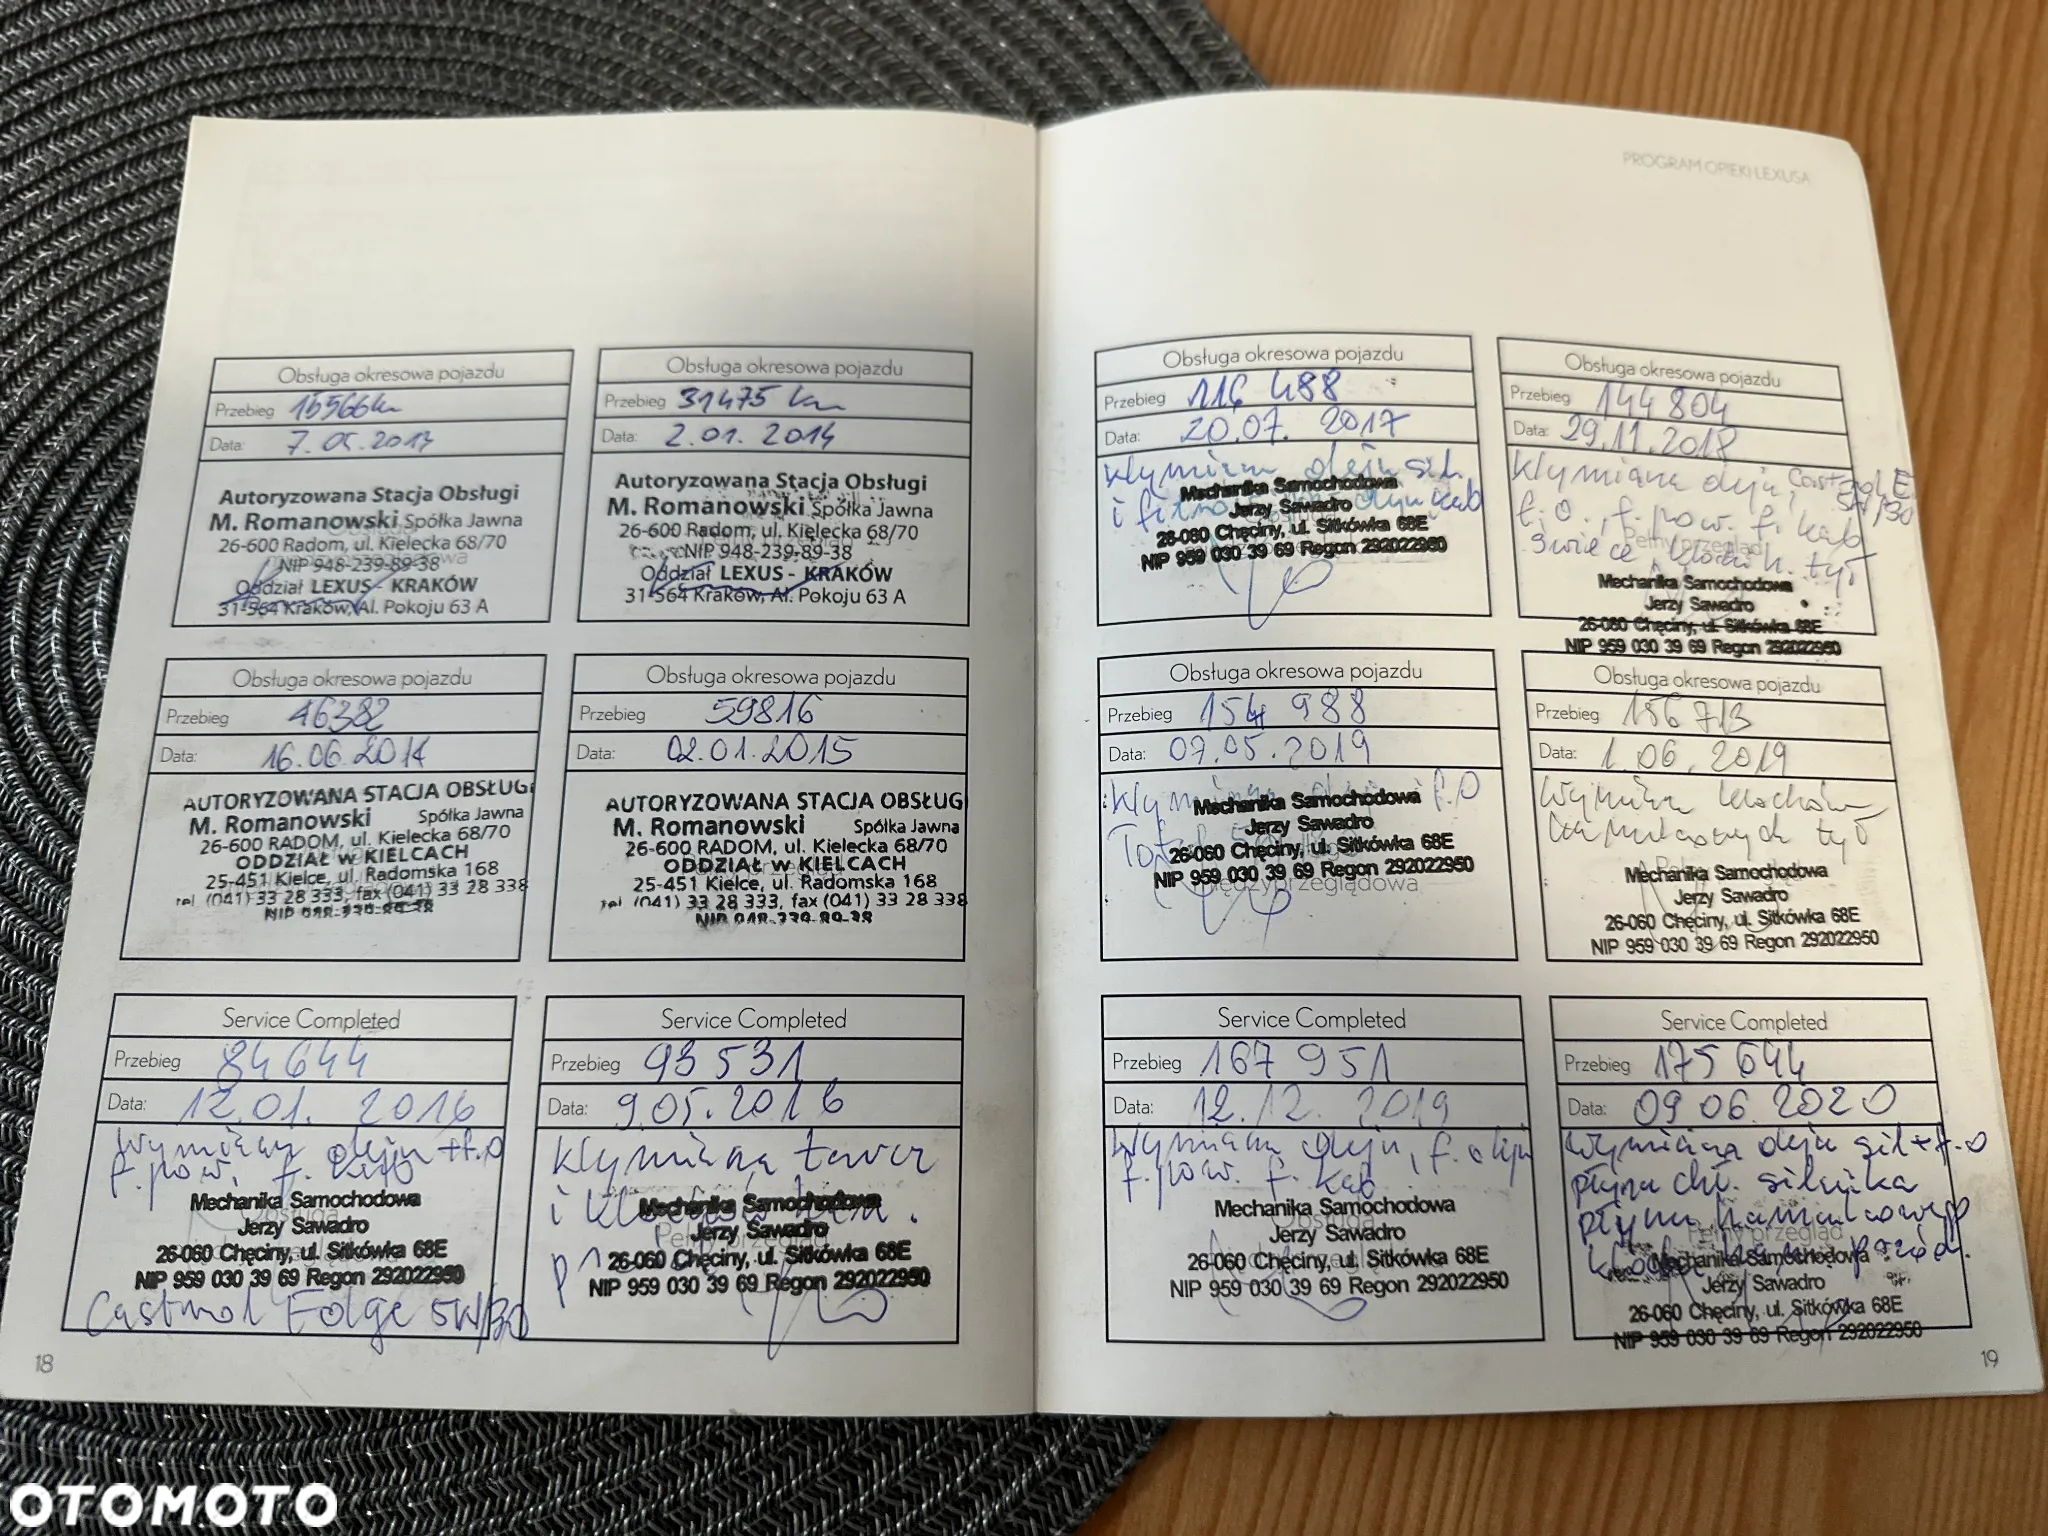 PROGRAM OPIEKI LEXUSA
Obsługa okresowa pojazdu
Przebieg 15566km
Data: 7.05.2013
Autoryzowana Stacja Obsługi
M. Romanowski Spółka Jawna
26-600 Radom, ul. Kielecka 68/70
NIP 948-239-89-38
Oddział LEXUS - KRAKÓW
31-564 Kraków, Al. Pokoju 63 A
Obsługa okresowa pojazdu
Przebieg 31475 km
Data: 2.01.2014
Autoryzowana Stacja Obsługi
M. Romanowski Spółka Jawna
26-600 Radom, ul. Kielecka 68/70
NIP 948-239-89-38
Oddział LEXUS - KRAKÓW
31-564 Kraków, Al. Pokoju 63 A
Obsługa okresowa pojazdu
Przebieg 46382
Data: 16.06.2014
AUTORYZOWANA STACJA OBSŁUGI
M. Romanowski Spółka Jawna
26-600 RADOM, ul. Kielecka 68/70
ODDZIAŁ w KIELCACH
25-451 Kielce, ul. Radomska 168
tel. (041) 33 28 333, fax (041) 33 28 338
NIP 948-239-89-38
Obsługa okresowa pojazdu
Przebieg 59816
Data: 02.01.2015
AUTORYZOWANA STACJA OBSŁUG
M. Romanowski Spółka Jawna
26-600 RADOM, ul. Kielecka 68/70
ODDZIAŁ w KIELCACH
25-451 Kielce, ul. Radomska 168
tel. (041) 33 28 333, fax (041) 33 28 338
NIP 948-239-89-38
Service Completed
Przebieg 84644
Data: 12.01.2016
Wymiana oleju + f.o
f. pow, f. kab
Mechanika Samochodowa
Jerzy Sawadro
26-060 Chęciny, ul. Sitkówka 68E
NIP 959 030 39 69 Regon 292022950
Castrol Edge 5W/30
Service Completed
Przebieg 93531
Data: 9.05.2016
Wymiana tarcz
i klocków ham.
Mechanika Samochodowa
Jerzy Sawadro
26-060 Chęciny, ul. Sitkówka 68E
NIP 959 030 39 69 Regon 292022950
18
Obsługa okresowa pojazdu
Przebieg 116 488
Data: 20.07.2017
Wymiana oleju sil.
i filtrów
Mechanika Samochodowa
Jerzy Sawadro
26-060 Chęciny, ul. Sitkówka 68E
NIP 959 030 39 69 Regon 292022950
Obsługa okresowa pojazdu
Przebieg 144 804
Data: 29.11.2018
Wymiana oleju, Castrol E
5W/30
f.o., f. pow. f. kab
świece klocki h. tył
Pełny przegląd
Mechanika Samochodowa
Jerzy Sawadro
26-060 Chęciny, ul. Sitkówka 68E
NIP 959 030 39 69 Regon 292022950
Obsługa okresowa pojazdu
Przebieg 154 988
Data: 07.05.2019
Wymiana f.o
Mechanika Samochodowa
Jerzy Sawadro
26-060 Chęciny, ul. Sitkówka 68E
NIP 959 030 39 69 Regon 292022950
międzyprzeglądowa
Obsługa okresowa pojazdu
Przebieg 156 713
Data: 1.06.2019
Wymiana klocków
hamulcowych tył
Mechanika Samochodowa
Jerzy Sawadro
26-060 Chęciny, ul. Sitkówka 68E
NIP 959 030 39 69 Regon 292022950
Service Completed
Przebieg 167 951
Data: 12.12.2019
Wymiana oleju, f. oleju
f. pow. f. kab
Mechanika Samochodowa
Jerzy Sawadro
26-060 Chęciny, ul. Sitkówka 68E
NIP 959 030 39 69 Regon 292022950
Service Completed
Przebieg 175 644
Data: 09 06.2020
Wymiana oleju sil + f.o
płynu chł. silnika
płynu hamulcowego
Pełny przegląd
Mechanika Samochodowa
Jerzy Sawadro
26-060 Chęciny, ul. Sitkówka 68E
NIP 959 030 39 69 Regon 292022950
19
OTOMOTO